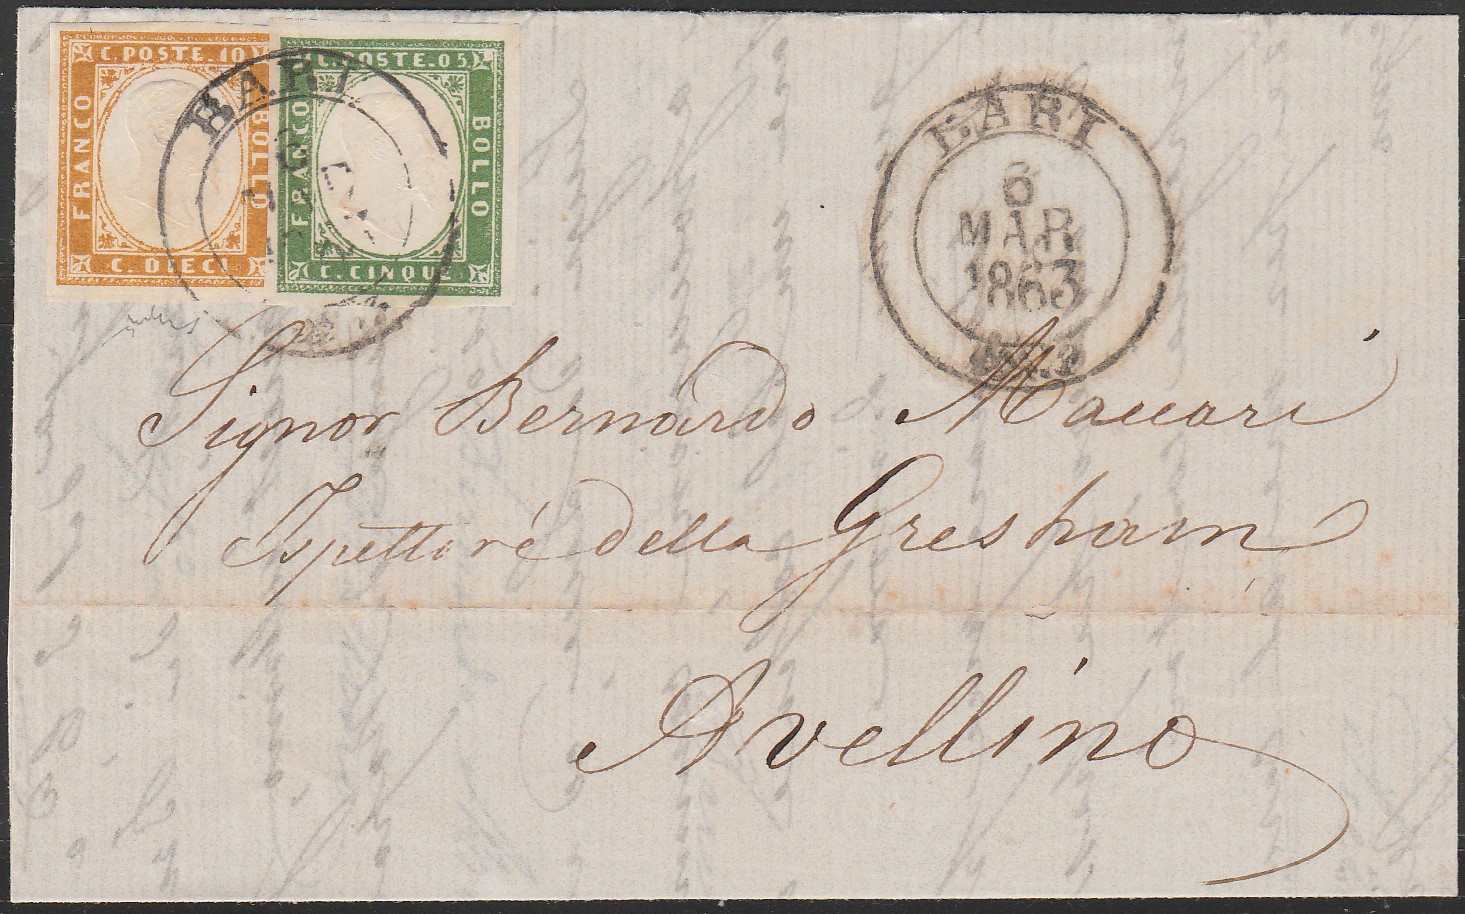 C. POSTE. 10
FRANCO
BOLLO
C. DIECI
C. POSTE. 05
FRANCO
BOLLO
C. CINQUE
BARI
6
BARI
6
MAR
1863
Signor Bernardo Maccari
Ispettore della Gresham
Avellino